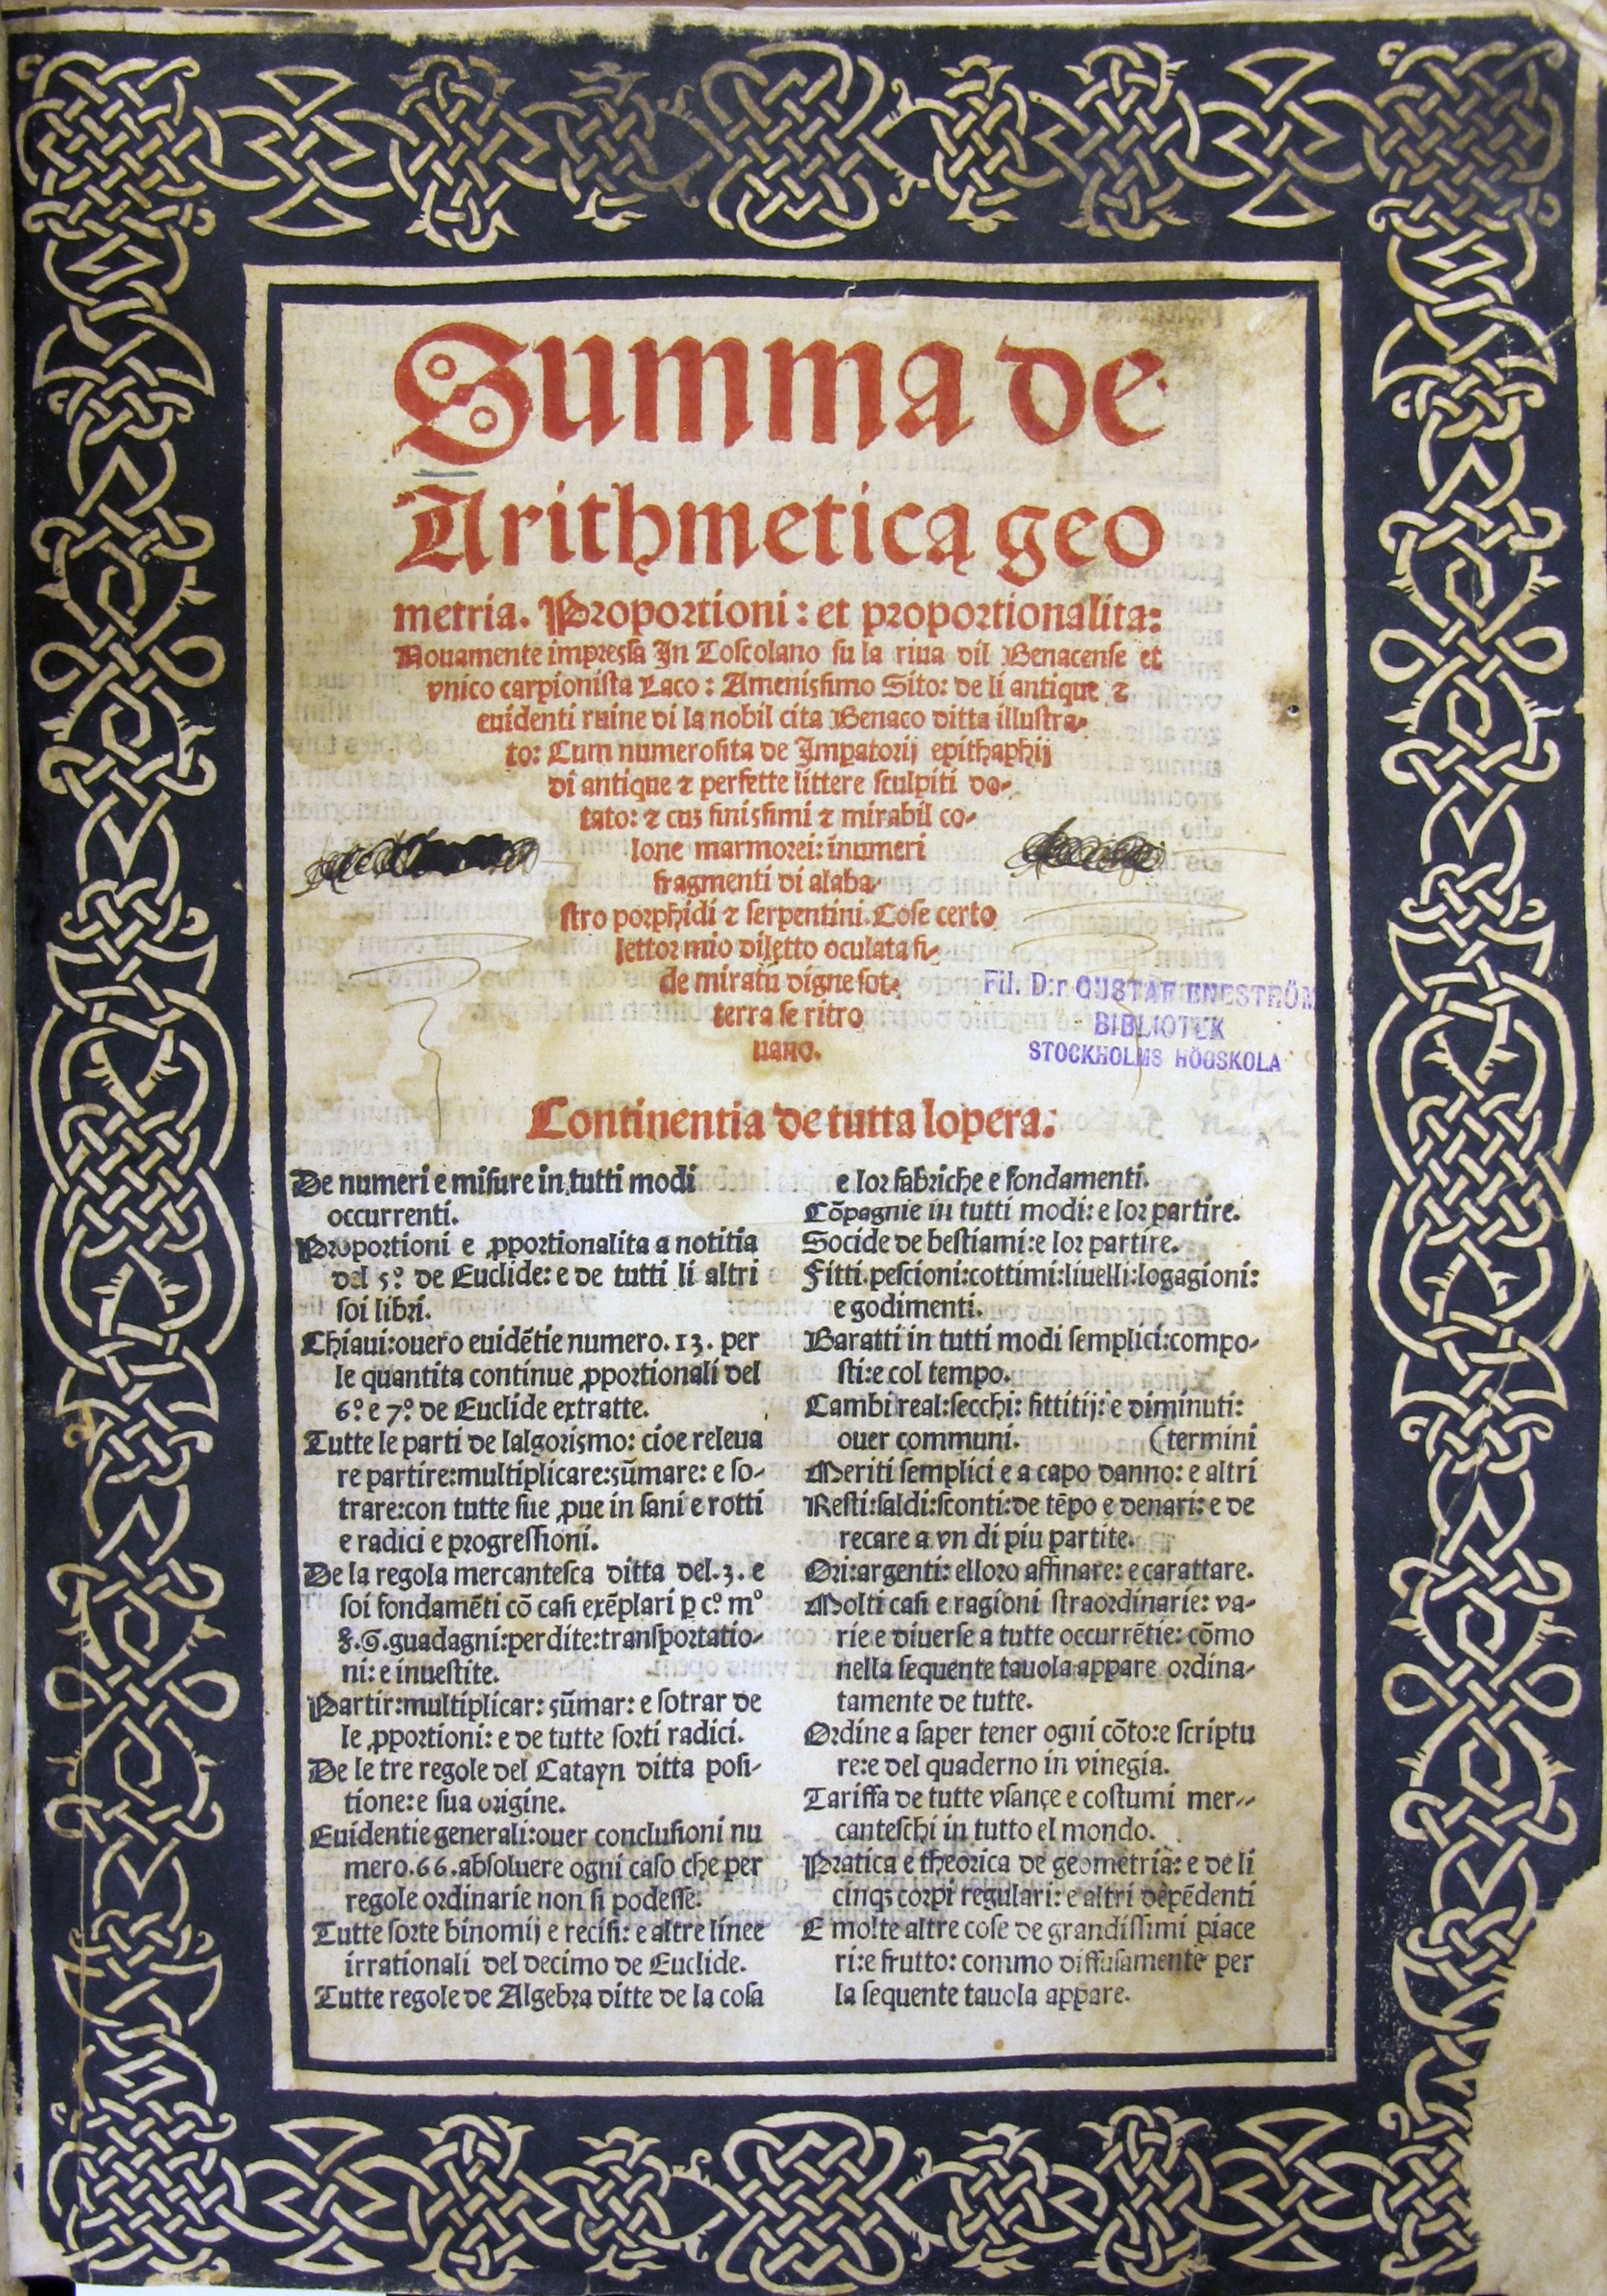 Summa de
Arithmetica geo
metria. Proportioni: et proportionalita:
Nouamente impressa In Toscolano su la riua dil Benacense et
vnico carpionista Laco: Amenissimo Sito: de li antique ⁊
euidenti ruine di la nobil cita Benaco ditta illustra-
to: Cum numerosita de Impatorij epithaphij
di antique ⁊ perfette littere sculpiti do-
tato: ⁊ cuȝ finissimi ⁊ mirabil co-
lone marmorei: īnumeri
fragmenti di alaba-
stro porphidi ⁊ serpentini. Cose certo
lettor mio diletto oculata fi-
de miratu digne sot-
terra se ritro
uano.
Fil. D:r GUSTAF ENESTRÖM
BIBLIOTEK
STOCKHOLMS HÖGSKOLA
Continentia de tutta lopera:
De numeri e misure in tutti modi
occurrenti.
Proportioni e ꝓportionalita a notitia
del 5º de Euclide: e de tutti li altri
soi libri.
Chiaui: ouero euidētie numero. 13. per
le quantita continue ꝓportionali del
6º e 7º de Euclide extratte.
Tutte le parti de lalgorismo: cioe releua
re partire: multiplicare: sūmare: e so-
trare: con tutte sue ꝓue in sani e rotti
e radici e progressioni.
De la regola mercantesca ditta del. 3. e
soi fondamēti cō casi exēplari ꝑ cº mº
guadagni: perdite: transportatio-
ni: e inuestite.
Partir: multiplicar: sūmar: e sotrar de
le ꝓportioni: e de tutte sorti radici.
De le tre regole del Catayn ditta posi-
tione: e sua origine.
Euidentie generali: ouer conclusioni nu
mero. 66. absoluere ogni caso che per
regole ordinarie non si podesse.
Tutte sorte binomij e recisi: e altre linee
irrationali del decimo de Euclide.
Tutte regole de Algebra ditte de la cosa
e lor fabriche e fondamenti.
Cōpagnie in tutti modi: e lor partire.
Socide de bestiami: e lor partire.
Fitti: pescioni: cottimi: liuelli: logagioni:
e godimenti.
Baratti in tutti modi semplici: compo-
sti: e col tempo.
Cambi real: secchi: fittitij: e diminuti:
ouer communi. (termini
Meriti semplici e a capo danno: e altri
Resti: saldi: sconti: de tēpo e denari: e de
recare a vn di piu partite.
Ori: argenti: elloro affinare: e carattare.
Molti casi e ragioni straordinarie: va-
rie e diuerse a tutte occurrētie: cōmo
nella sequente tauola appare ordina-
tamente de tutte.
Ordine a saper tener ogni cōto: e scriptu
re: e del quaderno in vinegia.
Tariffa de tutte vsançe e costumi mer-
canteschi in tutto el mondo.
Pratica e theorica de geometria: e de li
cinqȝ corpi regulari: e altri depēdenti
E molte altre cose de grandissimi piace
ri: e frutto: commo diffusamente per
la sequente tauola appare.